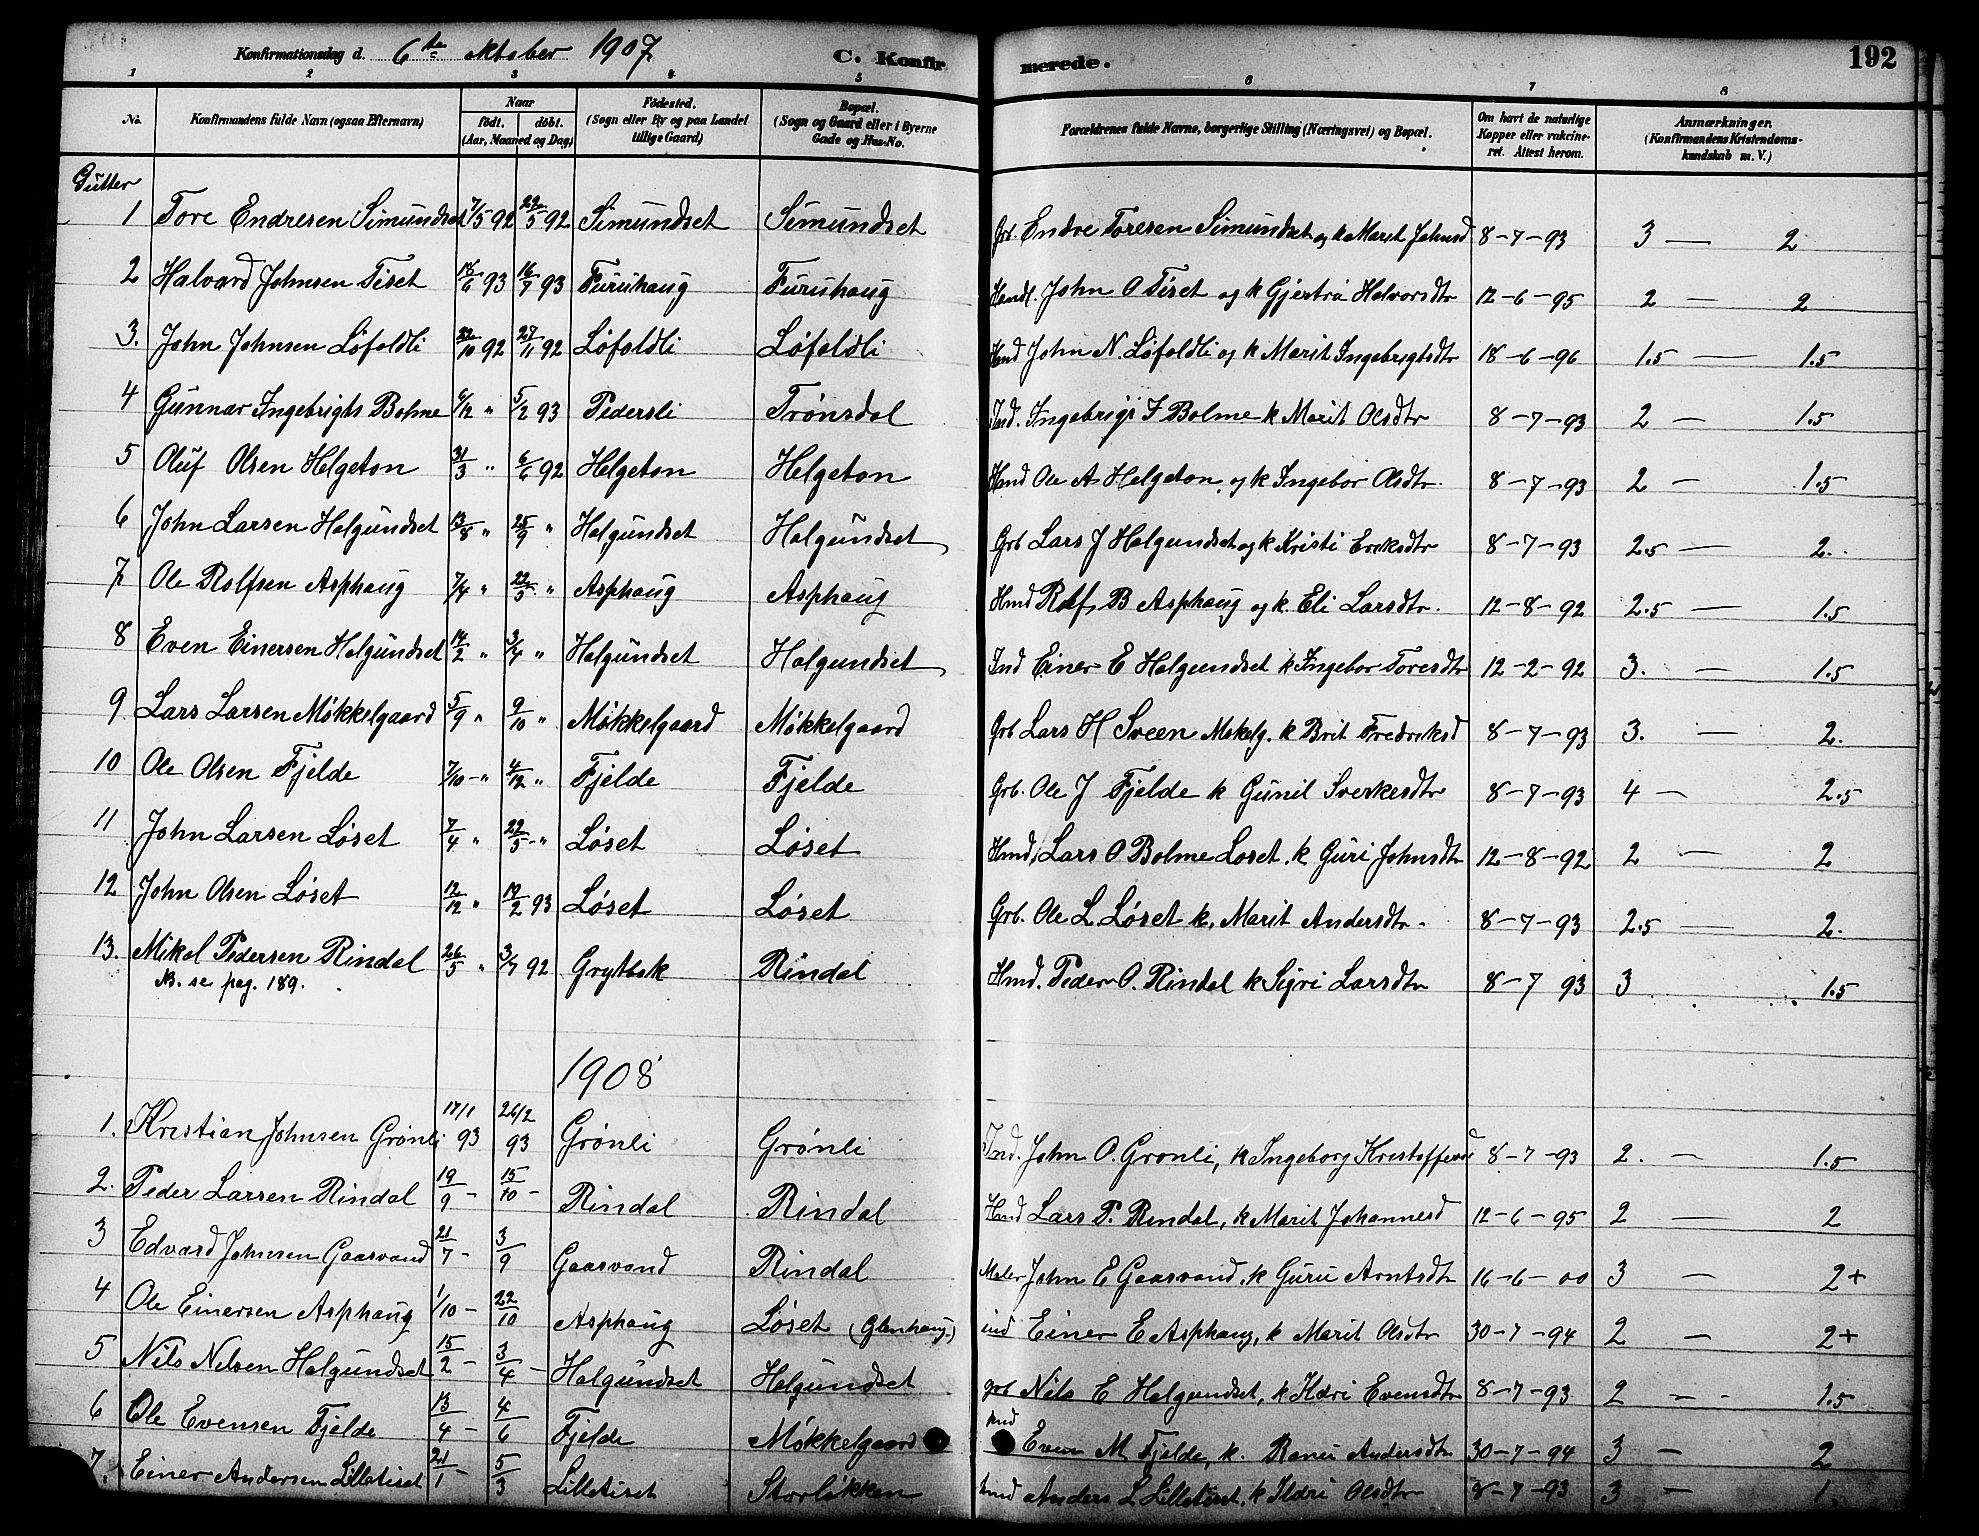 192
Konfirmationsdag d. 6te oktober 1907 C. Konfirmerede.
1 2 3 4 5 6 7 8
No. Konfirmandens fulde Navn (ogsaa Efternavn) Naar født. døbt. (Aar, Maaned og Dag) Fødested. (Sogn eller By og paa Landet tillige Gaard) Bopæl. (Sogn og Gaard eller i Byerne Gade og Hus-No. Forældrenes fulde Navne, borgerlige Stilling (Næringsvei) og Bopæl. Om havt de naturlige Kopper eller vakcineret. Attest herom. Anmærkninger, (Konfirmandens Kristendomskundskab m. V.)
Gutter
1 Tore Endresen Simundset 7/5 92 22/5 92 Simundset Simundset Grb. Endre Toresen Simundset og k Marit Johnsd 8-7-93 3 — 2
2 Halvard Johnsen Tiset 18/6 93 16/7 93 Furuhaug Furuhaug Hmd. John O Tiset og k Gjertru Halvorsdtr 12-6-95 2 — 2
3. John Johnsen Løfaldli 22/10 92 27/11 92 Løfaldli Løfaldli Hmd John N. Løfaldli og k Marit Ingebrigtsdtr 18-6-96 1.5 — 1.5
4 Gunnar Ingebrigts Bolme 6/12 " 5/2 93 Pedersli Trønsdal Ind. Ingebrigt I Bolme k Marit Olsdtr 8-7-93 2 — 1.5
5 Oluf Olsen Helgeton 31/3 " 6/6 92 Helgeton Helgeton Hmd Ole A Helgeton, og k Ingebor Olsdtr. 8-7-93 2 — 1.5
6 John Larsen Halgundset 13/8 " 25/9 " Halgundset Halgundset Grb Lars J Halgundset og k Kristi Eriksdtr 8-7-93 2.5 — 2.
7 Ole Rolfsen Asphaug 7/4 " 22/5 " Asphaug Asphaug Hmd Rolf B Asphaug og k. Eli Larsdtr. 12-8-92 2.5 — 1.5
8 Even Einersen Halgundset 14/2 " 3/4 " Halgundset Halgundset Ind Einer E Halgundset k Ingebor Toresdtr 12-2-92 3. — 1.5
9 Lars Larsen Møkkelgaard 5/9 " 9/10 " Møkkelgaard Møkkelgaard Grb Lars H Sveen Mokelg. k Brit Fredriksd 8-7-93 3. — 2.
10 Ole Olsen Fjelde 7/10 - " 4/12 " Fjelde Fjelde Grb. Ole J Fjelde k Gunil Sverkesdtr 8-7-93 4 — 2.5
11 John Larsen Løset 7/4 " 22/5 - " Løset Løset Hmd, Lars O Bolme Loset. k Guri Johnsdtr 12-8-92 2 — 2
12 John Olsen Løset 12/12 " 19/2 93 Løset Løset Grb. Ole L Løset k. Marit Andersdtr. 8-7-93 2.5 — 2.
13. Mikal Pedersen Rindal 26/5 " 3/7 92 Grytbak Rindal Hmd. Peder O. Rindal k Sigri Larsdtr 8-7 93 3 1.5
NB. se pag. 189.
1908
1. Kristian Johnsen Grønli 17/1 93 26/2 93 Grønli Grønli Ind. John O. Gronli, k Ingeborg Kristoffersd 8-7-93 2. — 1.5
2. Peder Larsen Rindal 19/9 - 15/10 - Rindal Rindal Hmd Lars P. Rindal, k Marit Johannesd 12-6-95 2 — 2
3 Edvard Johnsen Gaasvand 21/7 - 3/9 Gaasvand Rindal Maler John E Gaasvand, k Guru Arntsdtr 16-6-00 3 — 2+
4 Ole Einersen Asphaug 1/10 - 22/10 Asphaug Løset (Glenhaug.) ind Einer E Asphaug, k Marit Olsdtr 30-7-94 2 — 2+
5 Nils Nelsen Halgundset 15/2 - 3/4 - Halgundset Halgundset grb Nils E Halgundset, k Ildri Evensdtr 8-7-93 2 — 1.5
6 Ole Evensen Fjelde 13/4 - 4/6 Fjelde Møkkelgaard hmd Even M Fjelde, k. Andersdtr 30-7-94 3 — 2
7. Einer Andersen Lilletiset 21/1 - 5/3 Lilletiset Storløkken hmd Anders L Lilletiset, k Ildri Olsdtr 8-7-93 3 — 1.